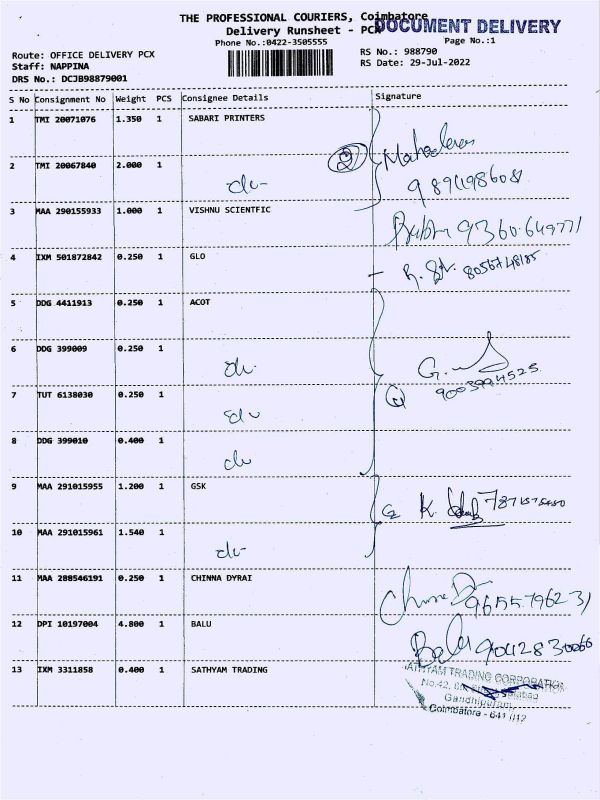 THE PROFESSIONAL COURIERS, Coimbatore
DOCUMENT DELIVERY
Delivery Runsheet - PCX
Phone No.:0422-3505555
Page No.:1
Route: OFFICE DELIVERY PCX
RS No.: 988790
Staff: NAPPINA
RS Date: 29-Jul-2022
DRS No.: DCJB98879001
S No Consignment No Weight PCS Consignee Details Signature
1 TMI 20071076 1.350 1 SABARI PRINTERS
2 TMI 20067840 2.000 1
3 MAA 290155933 1.000 1 VISHNU SCIENTFIC
4 IXM 501872842 0.250 1 GLO
5 DDG 4411913 0.250 1 ACOT
6 DDG 399009 0.250 1
7 TUT 6138030 0.250 1
8 DDG 399010 0.400 1
9 MAA 291015955 1.200 1 GSK
10 MAA 291015961 1.540 1
11 MAA 288546191 0.250 1 CHINNA DYRAI
12 DPI 10197004 4.800 1 BALU
Balu
13 IXM 3311858 0.400 1 SATHYAM TRADING
SATHYAM TRADING CORPORATION
No.42,
Gandhipuram,
Coimbatore - 641 012